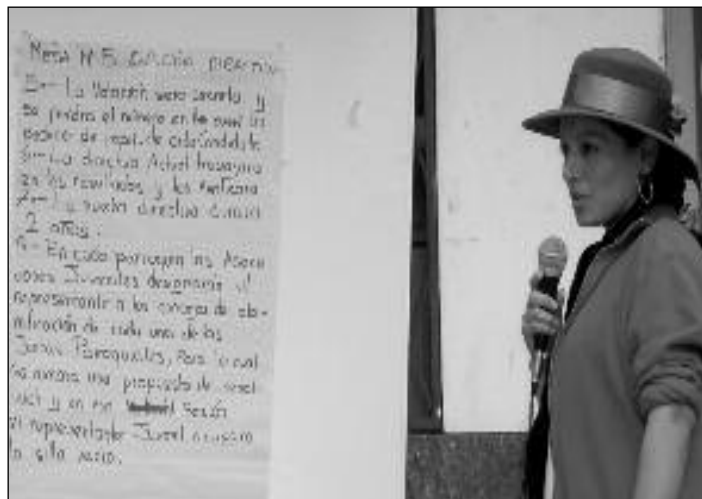 MESA Nº 5. ELECCIÓN DIRECTIVA
5-- La Votación sera secreta y
se pondra el numero en
de cada candidato
6-- La directiva Actual traspasara
los resultados y los
7-- La nueva directiva durara
2 años.
- En cada parroquia las Asocia
ciones Juveniles designarán el
representante a los consejos de pla-
nificación de cada una de las
Juntas Parroquiales, Para lo cual
una propuesta de
y en esa Sesión
el representante Juvenil ocupara
la silla vacia.